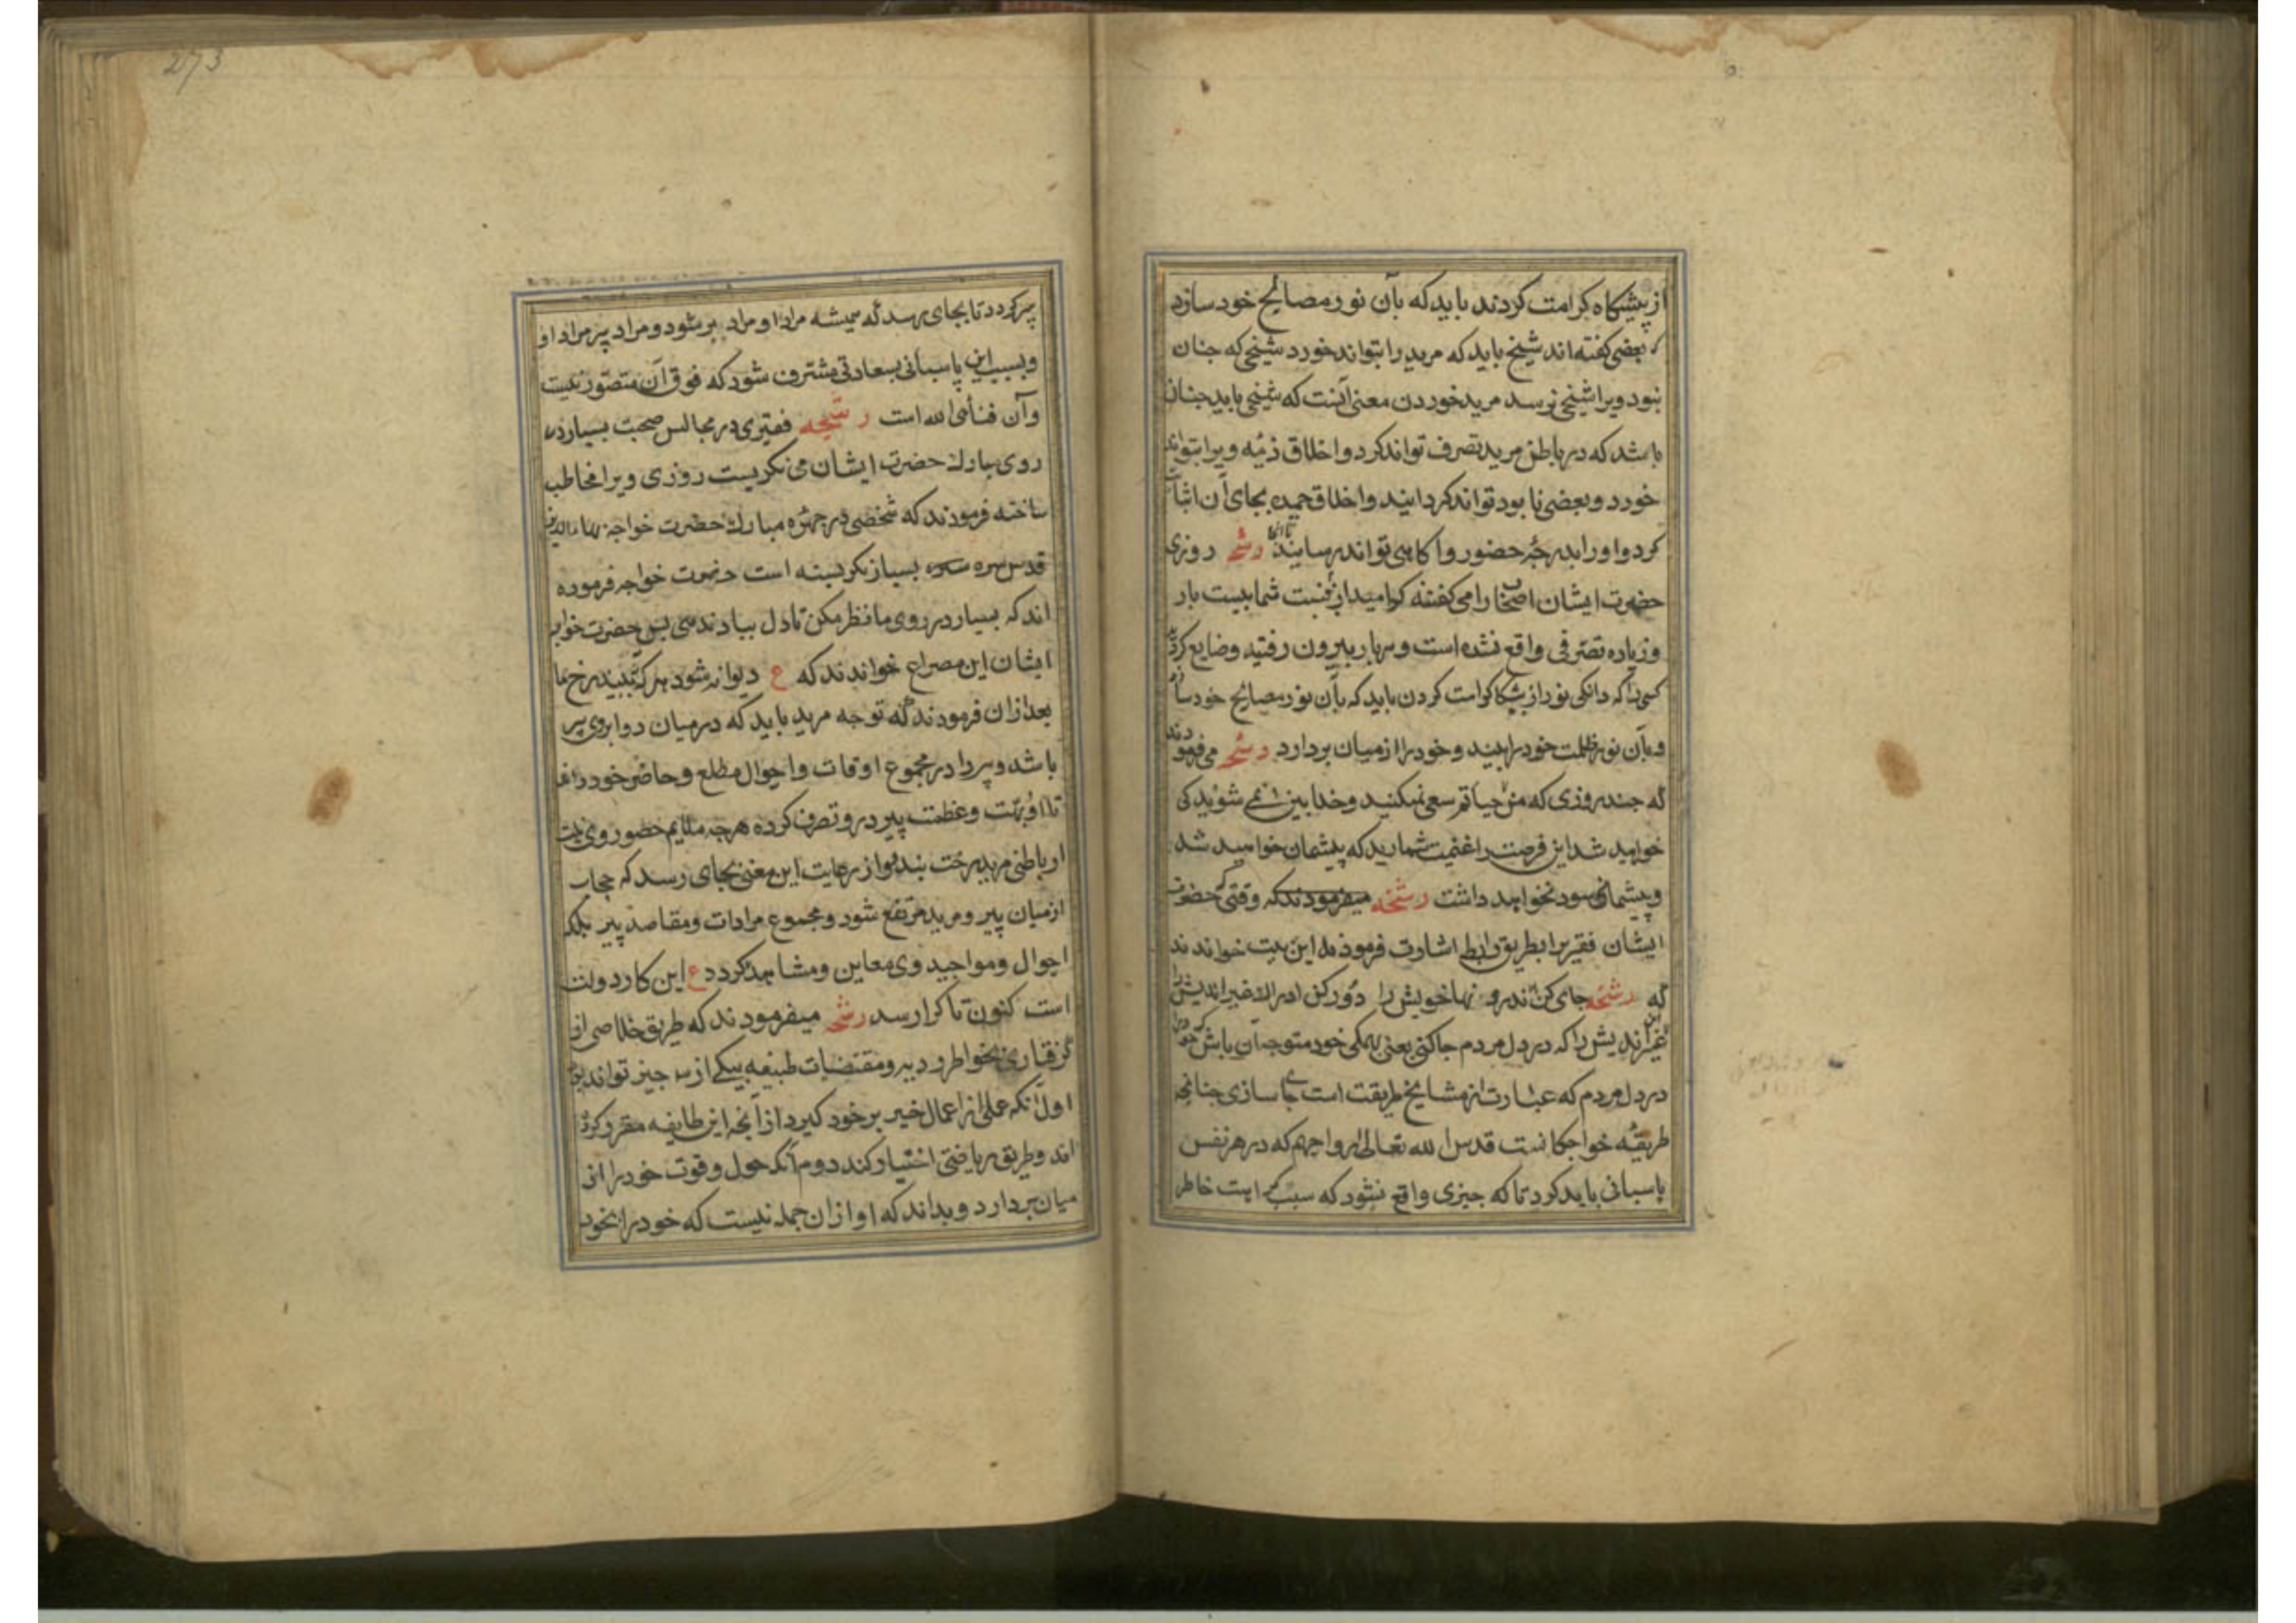 از پیشکاه کرامت کردند باید که بآن نور مصالح خود سازد
بعضی کفته‌اند شیخ باید که مرید را بتواند خورد شیخی که جنان
نبود ویرا شیخی نرسد مرید خوردن معنی آنست که شیخی باید جنان
باشد که در باطن مرید تصرف تواند کرد و اخلاق ذمیه ویرا بتواند
خورد و بعضی نابود تواند کردانید و اخلاق حمیده بجای آن اثبات
کرد و اورا بدرجهٔ حضور و اکاهی تواند رسانید رشحه روزی
حضرت ایشان اصحاب را می کفتند که شما بیست بار
و زیاده تصرفی واقع نشده است و هر بار بیرون رفتید و ضایع کردید
کسی را که دانکی نور از پیشکاه کرامت کردن باید که بآن نور مصالح خود سازد
و بآن نور ظلمت خود را بیند و خود را از میان بردارد رشحه می فرمودند
که جند روزی که من حیاتم سعی نمیکنید و خدابین نمی شوید کی
خواهید شد این فرصت را غنیمت شمارید که پیشمان خواهید شد
و پیشمانی سود نخواهد داشت رشحه میفرمودند که وقتی که حضرت
ایشان فقیر را بطریق رابطه اشارت فرمودند این بیت خواندند
که رشحه جای کن در اندرونها خویش را دور کن ادراک غیر اندیش را
غیر اندیش را که در دل مردم جا کنی یعنی بهمکی خود متوجه آن باش که خود را
در دل مردم که عبارت از مشایخ طریقت است جا سازی جنانجه
طریقهٔ خواجکانست قدس الله تعالی ارواحهم که در هر نفس
پاسبانی باید کرد تا که جیزی واقع نشود که سبب کراهت خاطر
273
پیر کردد تا بجای برسد که همیشه مراد او مراد پیر شود و مراد پیر مراد او
و بسبب این پاسبانی بسعادتی مشترف شود که فوق آن متصور نیست
و آن فنا فی الله است رشحه فقیری در مجالس صحبت بسیار در
روی مبارک حضرت ایشان می نکریست روزی ویرا مخاطب
ساخته فرمودند که شخصی در جهرهٔ مبارک حضرت خواجه بهاء الدین
قدس سره بسیار نکریسته است حضرت خواجه فرموده
اند که بسیار در روی ما نظر مکن تا دل بباد ندهی پس حضرت خواجه
ایشان این مصراع خواندند که ع دیوانه شود هر که ببیند رخ ما
بعد ازان فرمودند که توجه مرید باید که در میان دو ابروی پیر
باشد و پیر را در مجموع اوقات و احوال مطلع و حاضر خود داند
تا ابهت و عظمت پیر درو تصرف کرده هر جه ملایم حضور وی نیست
از باطن مرید رخت بندد و از رعایت این معنی بجای رسد که حجاب
از میان پیر و مرید مرتفع شود و مجموع مرادات و مقاصد پیر بلکه
احوال و مواجید وی معاین و مشاهد کردد ع این کار دولت
است کنون تا کرا رسد رشحه میفرمودند که طریق خلاصی از
کرفتاری بخواطر ردیه و مقتضیات طبیعه بیکی از سه جیز تواند بود
اول آنکه عملی از اعمال خیر بر خود کیرد از آنجه این طایفه مقرر کرده
اند و طریق ریاضتی اختیار کند دوم آنکه حول و قوت خود را از
میان بردارد و بداند که او ازان جمله نیست که خود را بخود